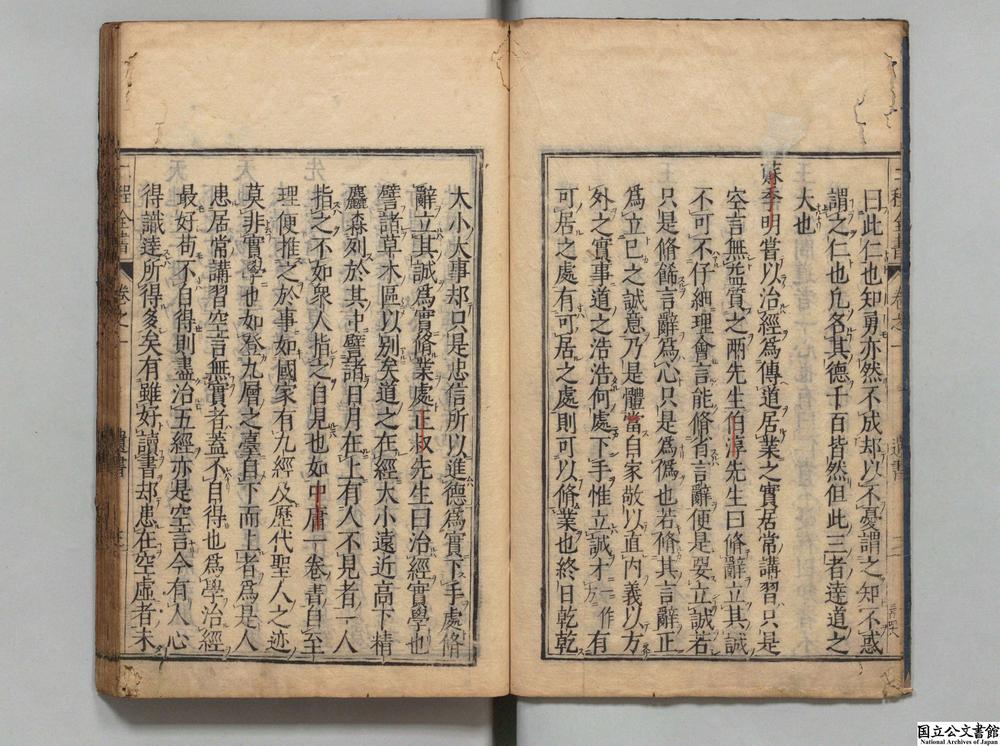 曰此仁也知勇亦然不成却以不憂謂之知不惑
謂之仁也凢名其德千百皆然但此三者達道之
大也
蘇季明嘗以治經爲傳道居業之實居常講習只是
空言無益質之兩先生伯淳先生曰脩辭立其誠
不可不仔細理會言能脩省言辭便是要立誠若
只是脩飾言辭爲心只是爲僞也若脩其言辭正
爲立己之誠意乃是體當自家敬以直内義以方
外之實事道之浩浩何處下手惟立誠才一作有
可居之處有可居之處則可以脩業也終日乾乾
大小大事却只是忠信所以進德爲實下手處脩
辭立其誠爲實脩業處正叔先生曰治經實學也
譬諸草木區以別矣道之在經大小遠近高下精
麤森列於其中譬諸日月在上有人不見者一人
指之不如衆人指之自見也如中庸一卷書自至
理便推之於事如國家有九經及歷代聖人之迹
莫非實學也如登九層之臺自下而上者爲是人
患居常講習空言無實者蓋不自得也爲學治經
最好苟不自得則盡治五經亦是空言今有人心
得識達所得多矣有雖好讀書却患在空虛者未
二程全書
卷之一
遺書
国立公文書館
National Archives of Japan